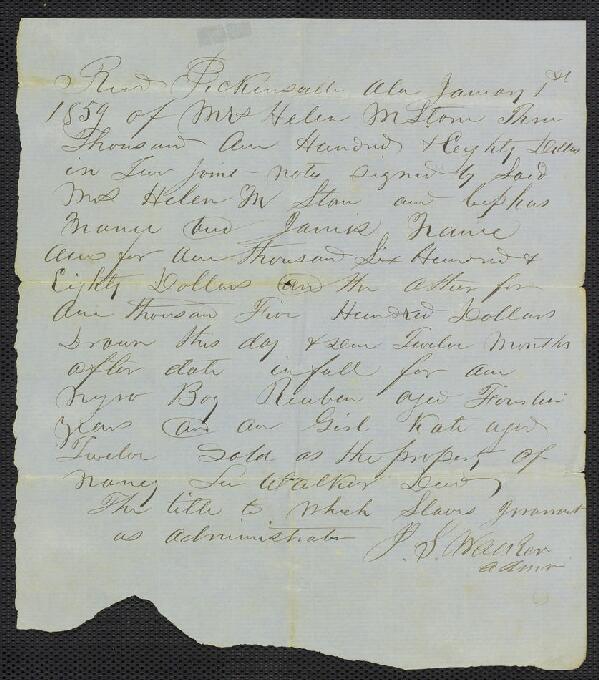 Recd Pickinsville Ala January 1st
1859 of Mrs Helen M Stone Three
Thousand One Hundred & Eighty Dollars
in Two joint notes signed by Said
Mrs Helen M Stone and Cephas
Nance and James Nance
one for One thousand Six Hundred &
Eighty Dollars and the other for
One thousand Five Hundred Dollars
Drawn this day & due Twelve Months
after date in full for one
Negro Boy Reuben aged
years and one Girl Kate aged
Twelve Sold as the property of
Nancy Walker Decd
The title to which Slaves I warrant
as Administrator P. S. Walker
admr